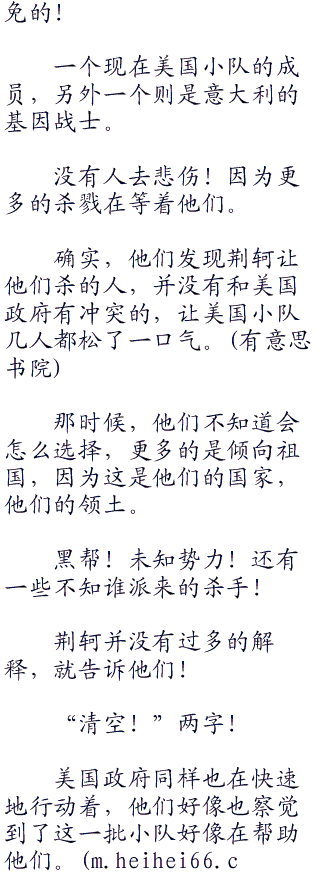 免的！
一个现在美国小队的成
员，另外一个则是意大利的
基因战士。
没有人去悲伤！因为更
多的杀戮在等着他们。
确实，他们发现荆轲让
他们杀的人，并没有和美国
政府有冲突的，让美国小队
几人都松了一口气。(有意思
书院)
那时候，他们不知道会
怎么选择，更多的是倾向祖
国，因为这是他们的国家，
他们的领土。
黑帮！未知势力！还有
一些不知谁派来的杀手！
荆轲并没有过多的解
释，就告诉他们！
“清空！”两字！
美国政府同样也在快速
地行动着，他们好像也察觉
到了这一批小队好像在帮助
他们。(m.heihei66.c